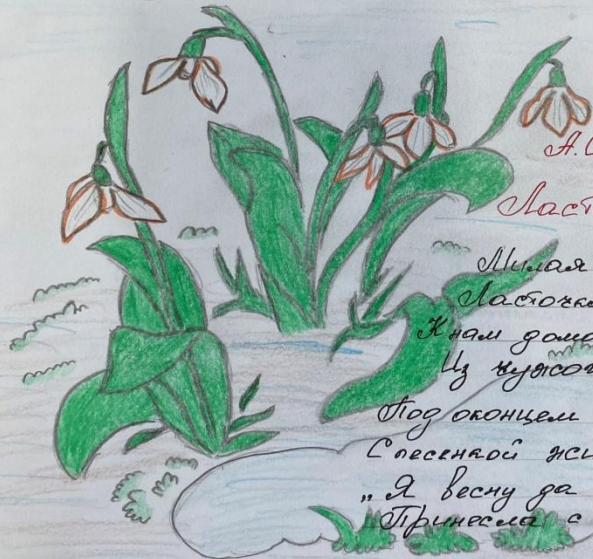 А.
Ласт
Милая
Ласточка
К нам дом
Из чужог
Под оконцем
С песенкой жи
„Я весну да
Принесла с